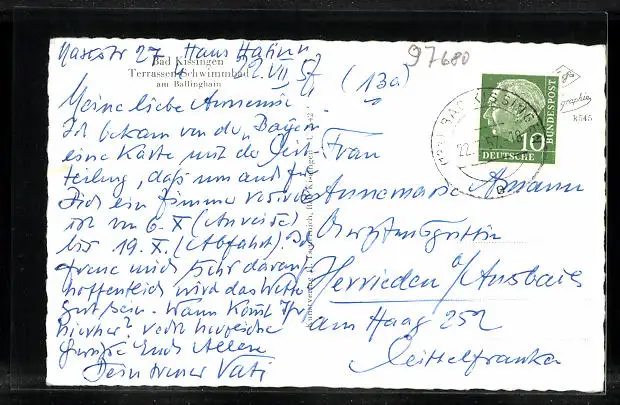 27
Bad Kissingen
Terrassen-Schwimmbad
am Ballinghain
22.VII.57
(13a)
97680
Meine liebe Annemie!
Ich bekam von du „Bayern
eine Karte mit der Mit-
teilung, daß uns auf für
Dich ein Zimmer reserviert
ist vom 6.X (Anreise)
bis 19.X. (Abfahrt). Ich
freue mich sehr darauf
hoffentlich wird das Wetter
gut sein. Wann kommt Ihr
hierher? recht herzliche
Grüße Euch Allen
Dein treuer Vati
Frau
Annemarie Amann
Herrieden b/Ansbach
am Haag 252
Mittelfranken
BAD KISSINGEN
22.
57-18
10
DEUTSCHE
BUNDESPOST
graphia
K545